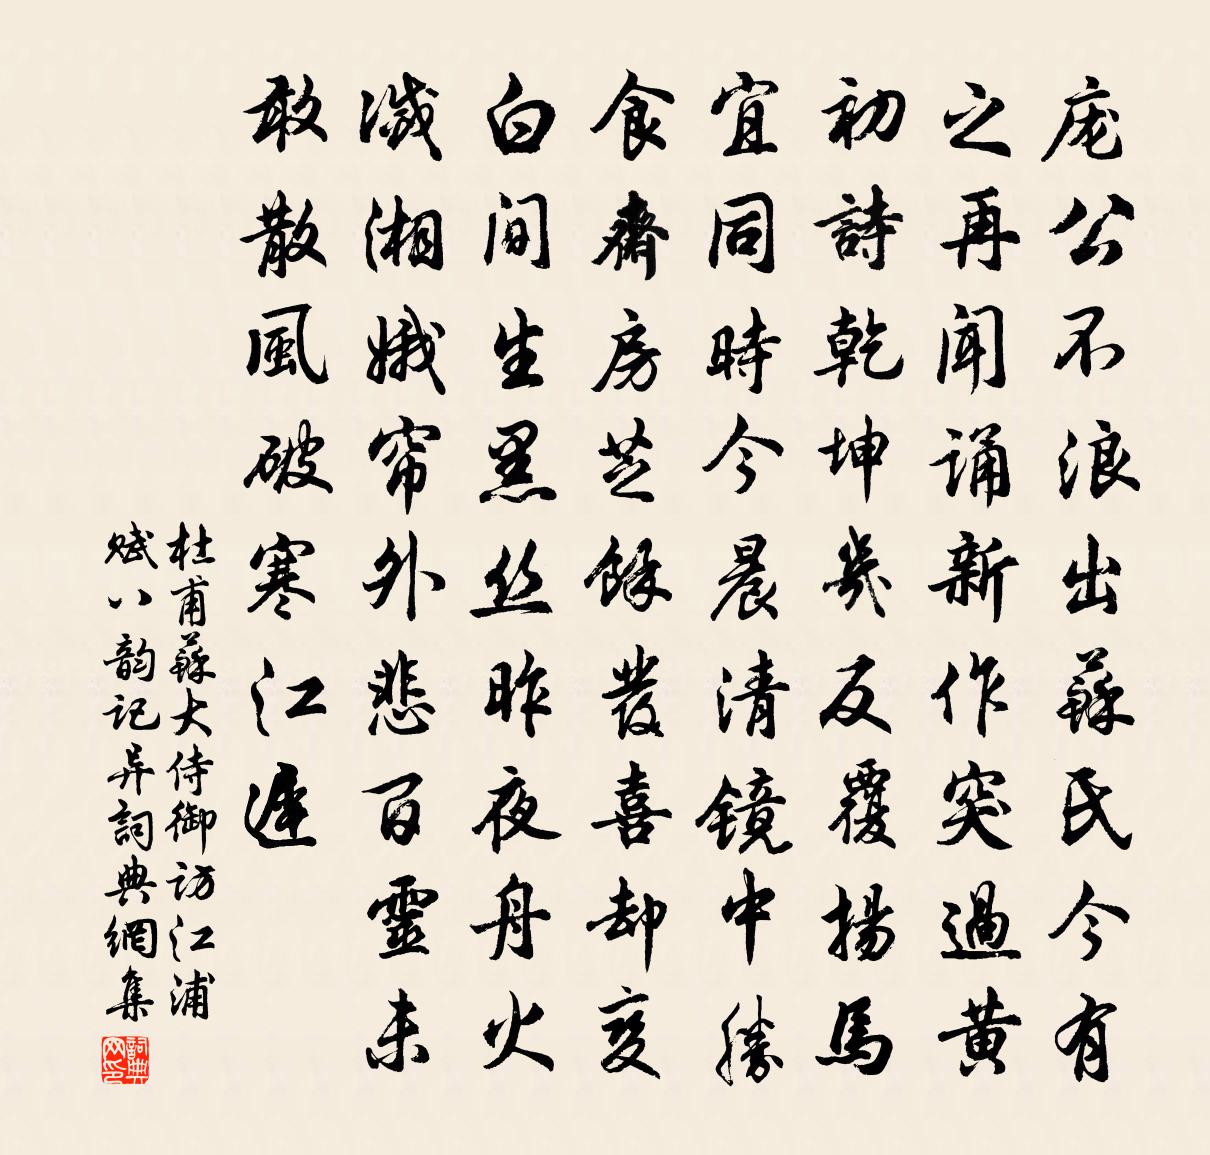 庞公不浪出蘇民今有
之再闻诵新作突過黄
初詩乾坤幾反覆揚馬
宜同時今晨清镜中勝
食齋房芝餘發喜却变
白间生黑丝昨夜舟火
滅湘娥帘外悲百靈未
敢散風破寒江遲
杜甫蘇大侍御访江浦
赋八韵记异詞典網集